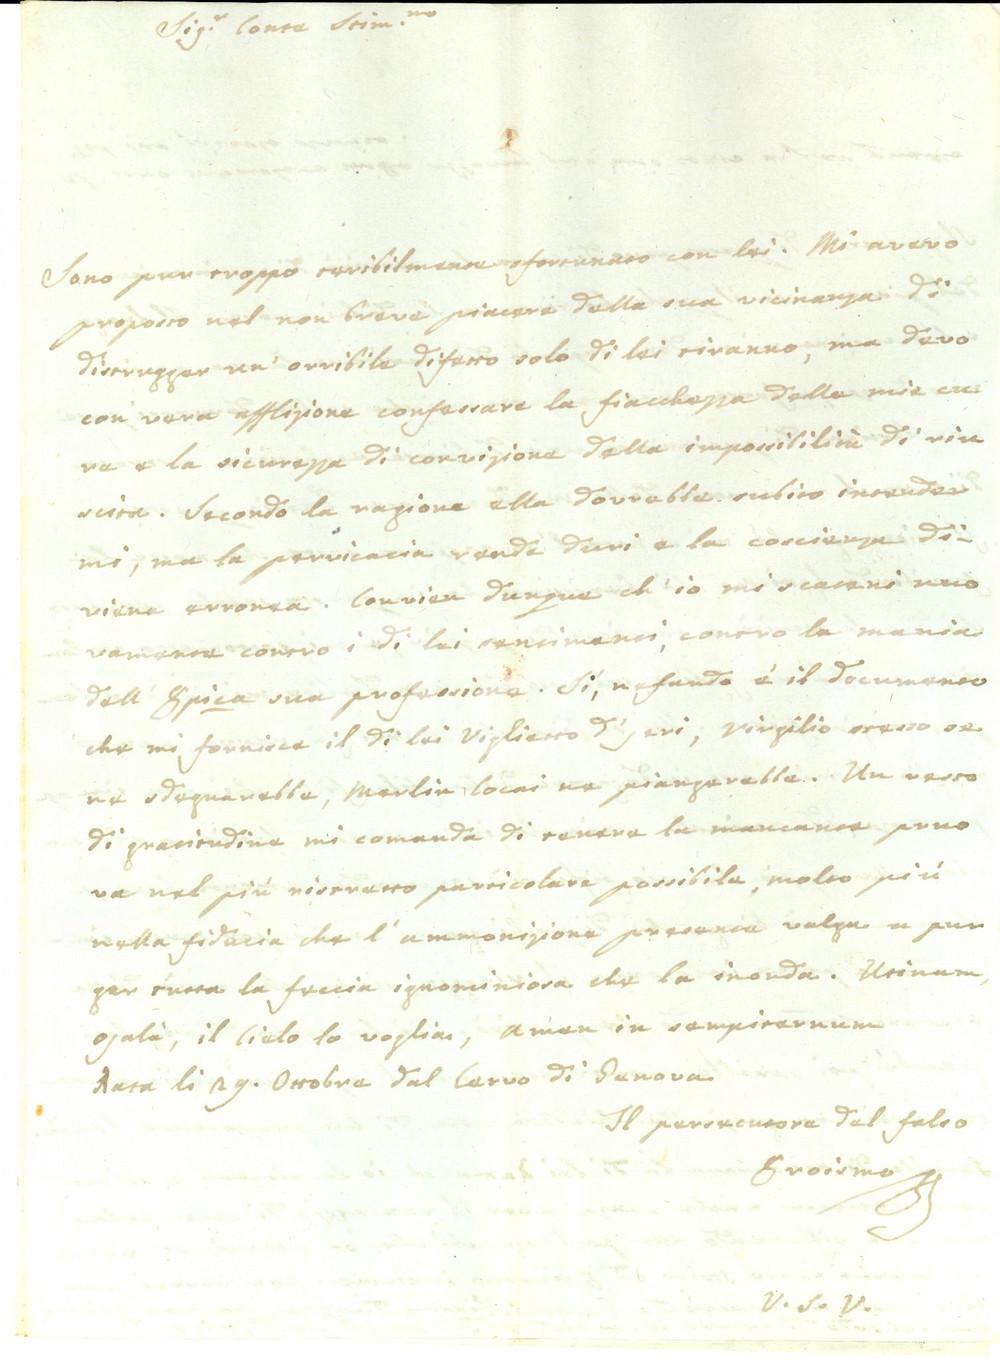 Sig.r Conte Stim.mo
Sono pur troppo teribilmente sfortunato con lei. Mi avevo
proposto nel non breve piacere della sua vicinanza di
distrugger un' orribile difetto solo di lei tiranno, ma devo
con vera afflizione confessare la fiacchezza delle mie cu
re e la sicurezza di convizione della impossibilità di riu
scita. Secondo la ragione ella dovrebbe subito intender
mi, ma la pervicacia rende duri e la coscienza di-
viene erronea. Convien dunque ch' io mi scateni nuo
vamente contro i di lei sentimenti, contro la mania
dell' Epica sua professione. Sí, nefando é il documento
che mi fornisce il di lei Viglietto d' jeri, Virgilio stesso se
ne sdegnarebbe, Merlin Cocai ne piangerebbe. Un resto
di gratitudine mi comanda di tenere la mancante pruo
va nel piú ristretto particolare possibile, molto piú
nella fiducia che l' ammonizione presente valga a pur
gar tutta la feccia ignominiosa che la inonda. Utinam,
ojalà, il Cielo lo voglia, Amen in sempiternum
Data li 29. Ottobre dal Cervo di Genova
Il persecutore del falso
Eroismo
V. S. V.